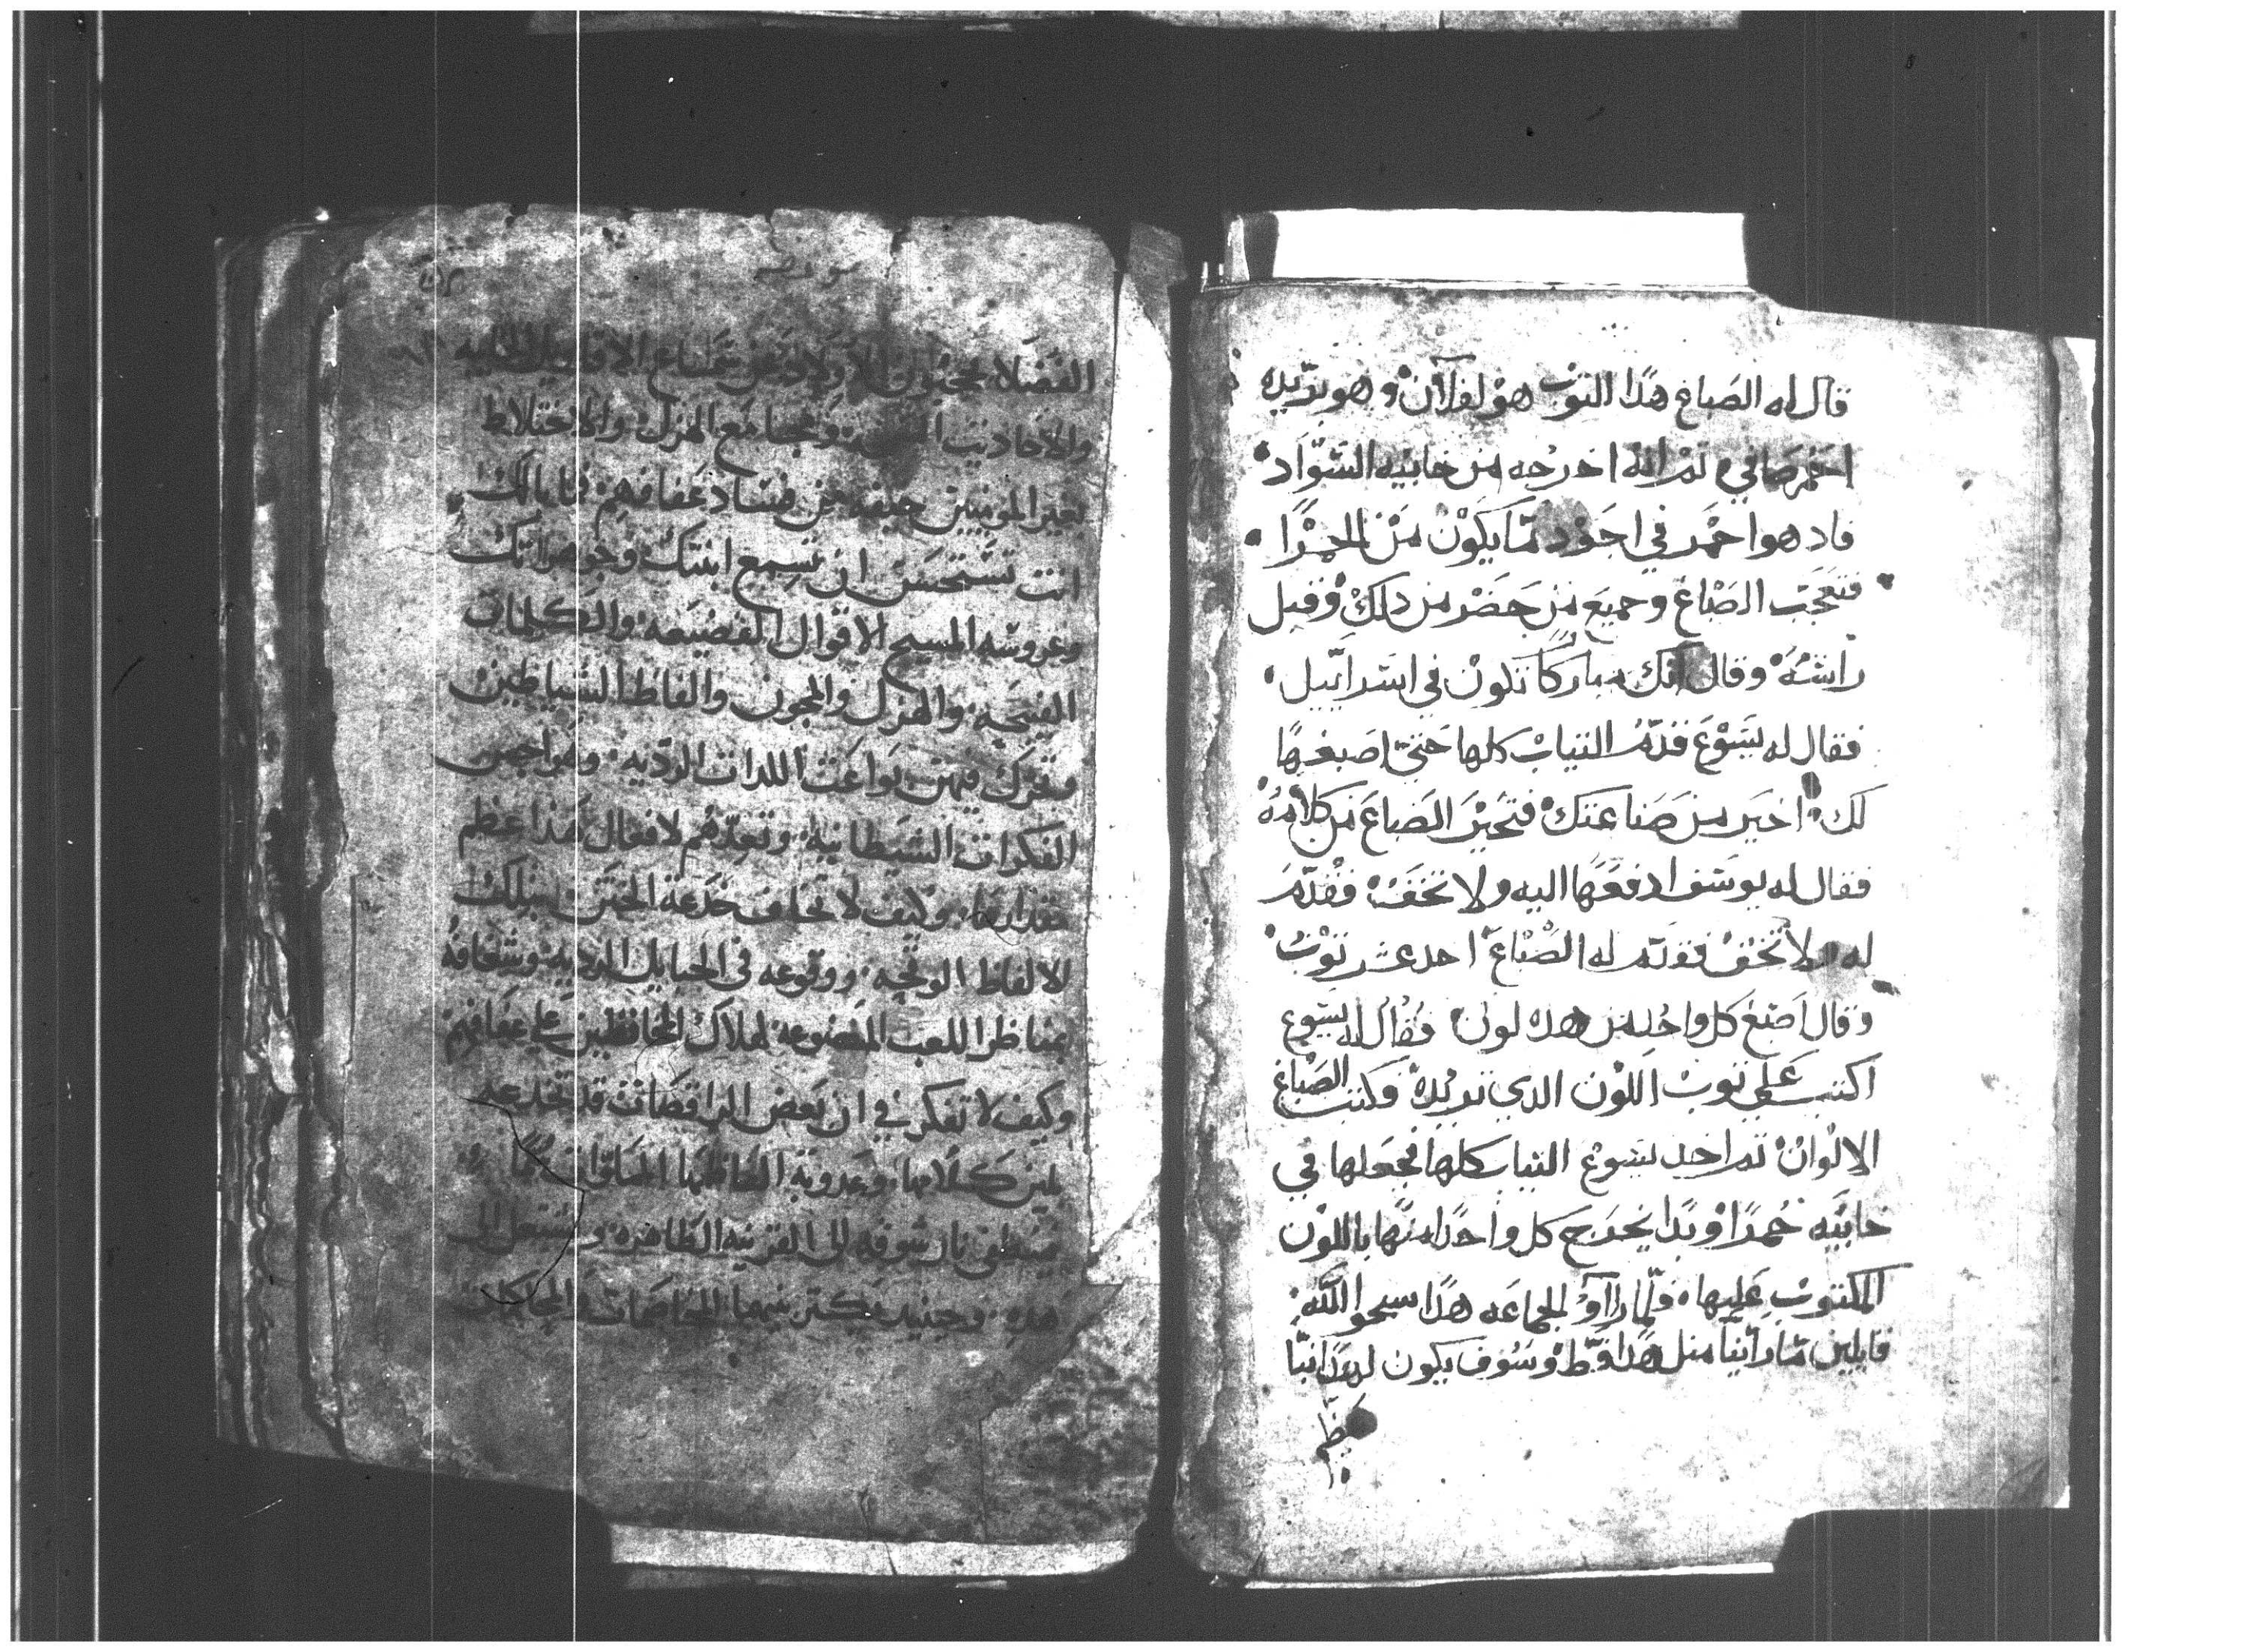 قال له الصباغ هدا التوب هو لفلان وهو يريده
احمر صافي تم انه اخرجه من خابيه السواد
فاد هوا احمر في اجود مما يكون من الحمرا
فتعجب الصباغ وجميع من حضر من دلك وقبل
راسه وقال انك مباركا تكون في اسراييل
فقال له يسوع قدم التياب كلها حتي اصبغها
لك اخير من صناعتك فتحير الصباغ من كلامه
فقال له يوسف ادفعها اليه ولا تخف فقدم
له لا تخف فقدم له الصباغ احد عشر توب
وقال اصبغ كل واحد من هده لون فقال له يسوع
اكتب علي توب اللون الدي تريده وكتب الصباغ
الالوان تم اخد يسوع التياب كلها فجعلها في
خابيه حمرا وبدا يخرج كل واحدا منها باللون
المكتوب عليها فلما راوا الجماعه هدا سبحوا الله
قايلين ما راينا متل هدا قط وسوف يكون لهدا نبا
عظم
الفضلا يحجبون الاولاد عن سماع الاقاويل
والاحاديث ومجامع الهزل والاختلاط
بغير المومنين خيفه من فساد عفافهم فما بالك
انت تستحسن ان تسمع ابنتك وجوهرتك
وعروسه المسيح الاقوال الفضيعه والكلمات
القبيحه والهزل والمجون والفاظ الشياطين
وتحرك فيهن بواعث اللدات الرديه وهواجس
الفكرات الشيطانيه وتعدهم لافعال هدا عظم
مقدارها وكيف لا تخاف خدعة الختن بتلك
الالفاظ الوقحه ووقوعه في الحبايل الرديه وشغافه
بمناظر اللعب المصنوعه لهلاك المحافظين علي عفافهم
وكيف لا تفكر في ان بعض الراقصات قد تخدعه
بلين كلامها وعدوبة الفاظها
فينطفي نار شوقه الى القرينه الطاهره ويشتعل الى
هده وحينيد يكتر بينهما المخاصمات والمحاكات